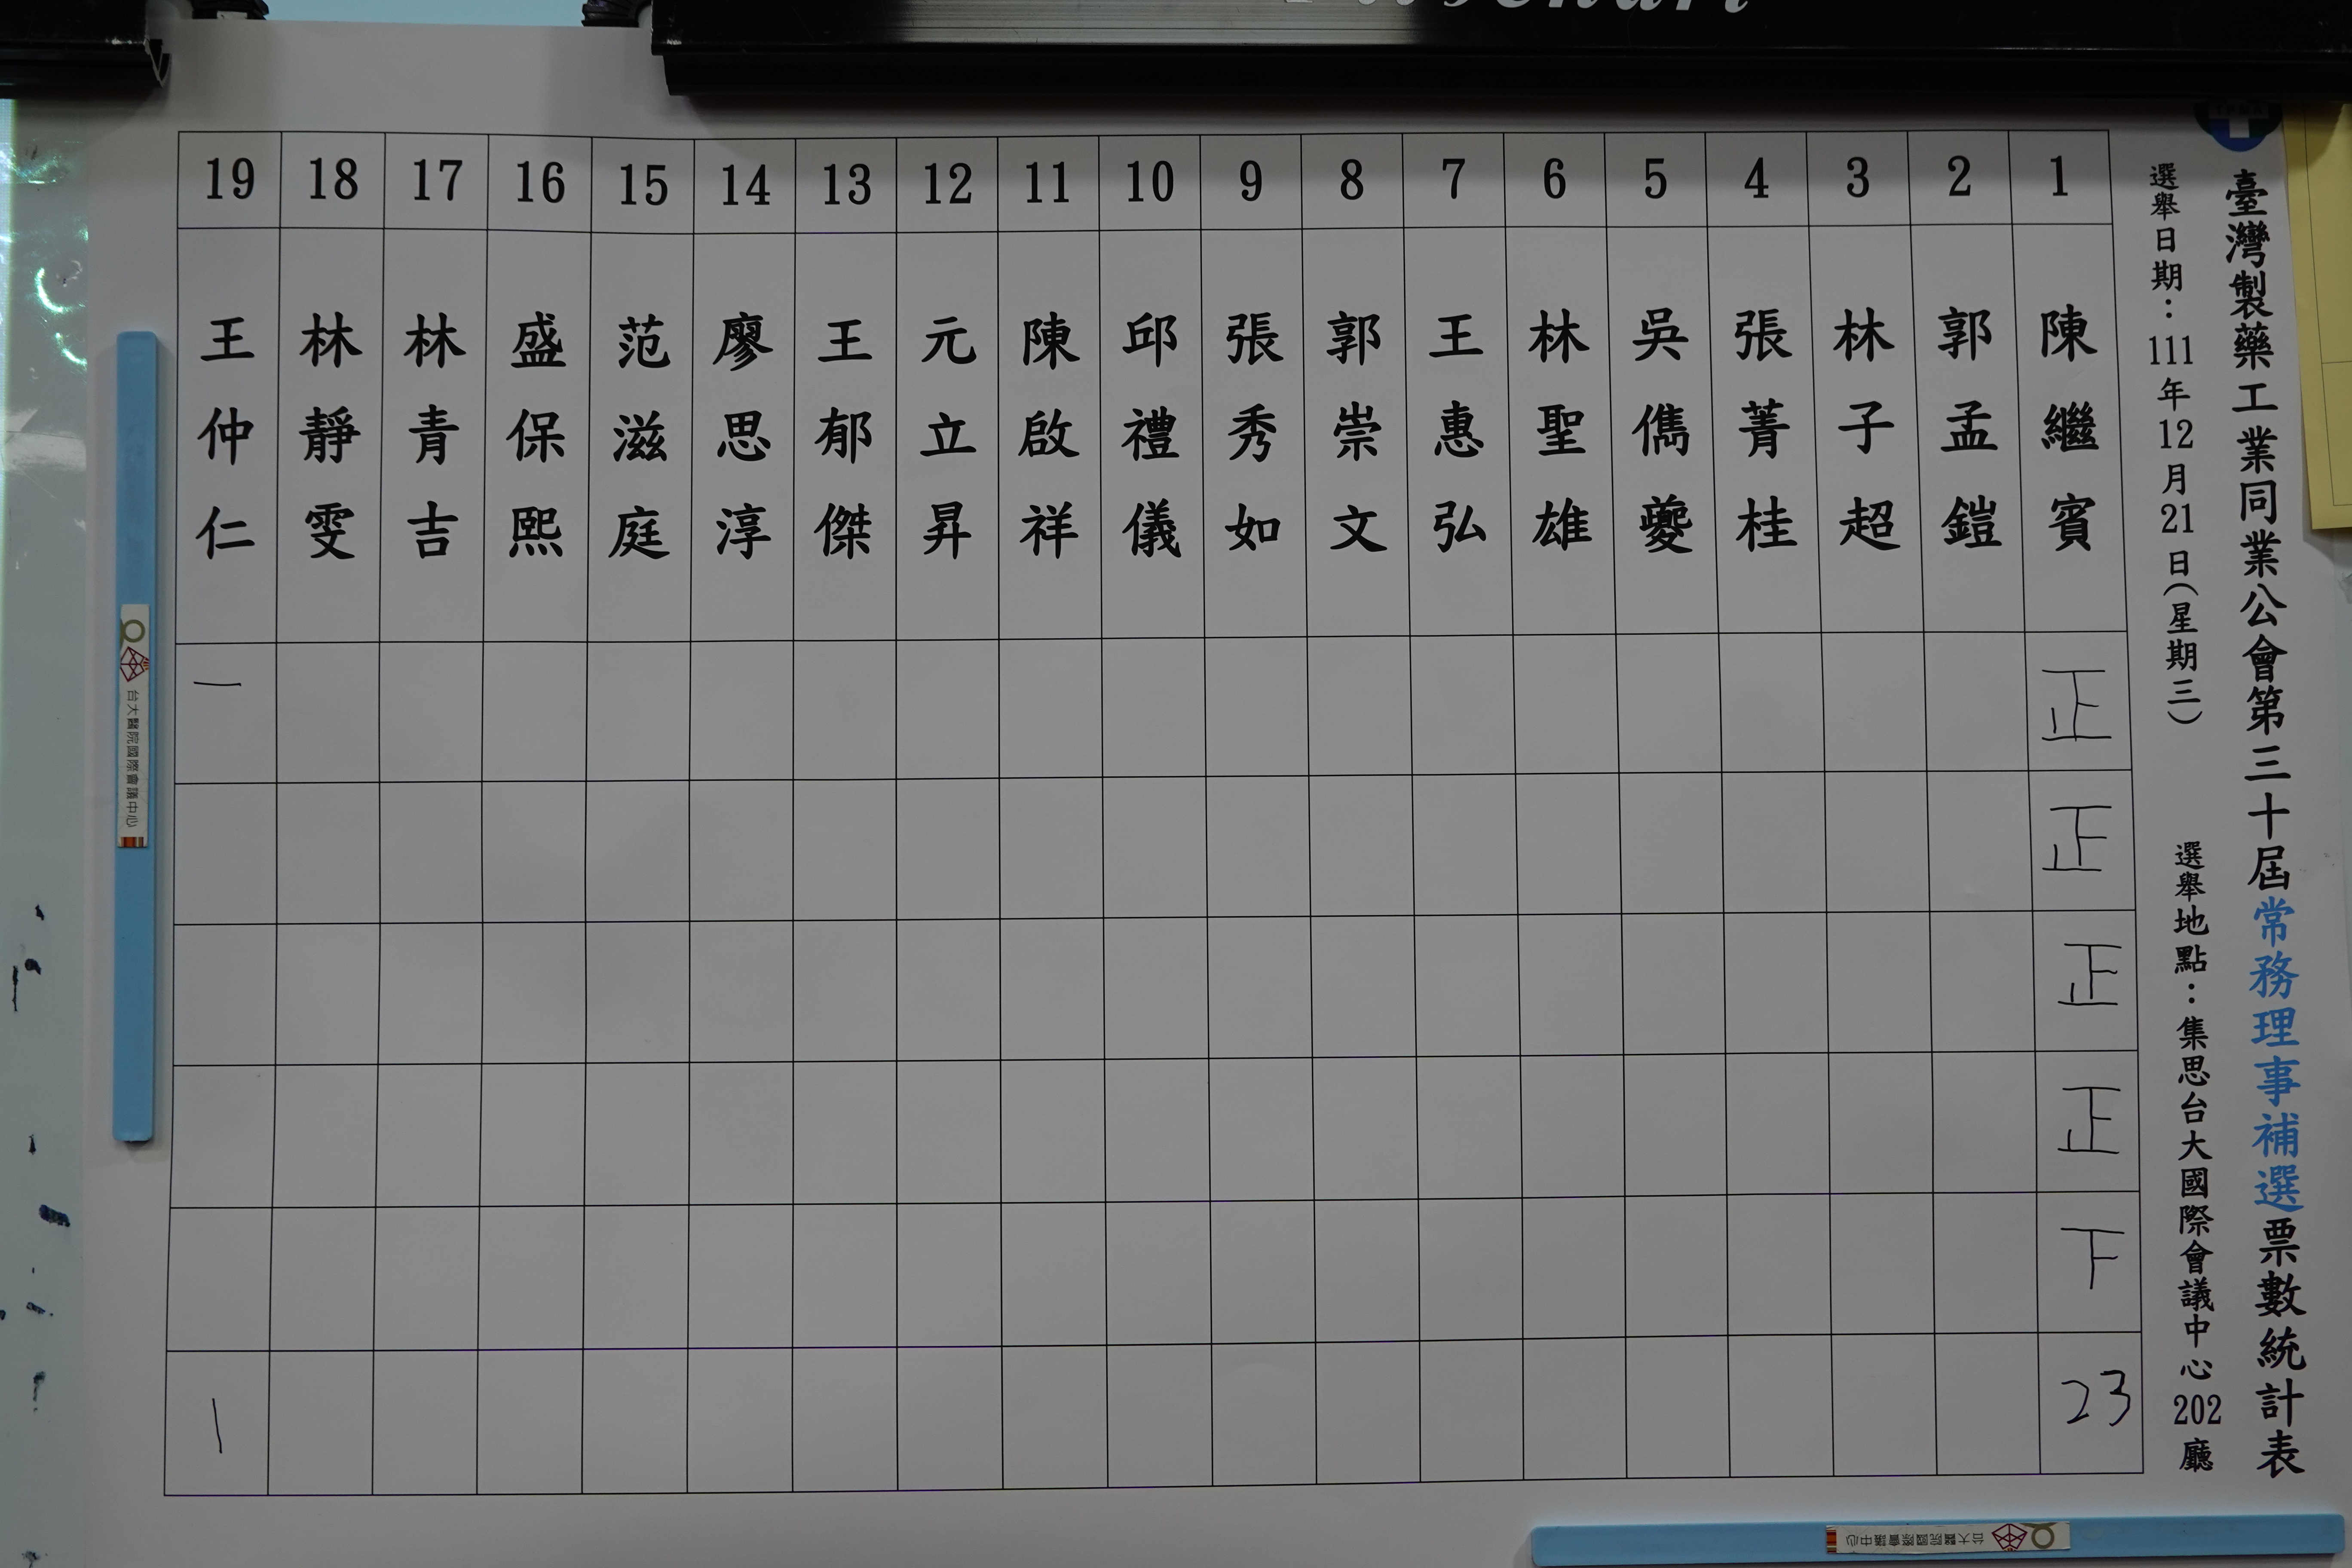 臺灣製藥工業同業公會第三十屆常務理事補選票數統計表
選舉日期：111年12月21日(星期三) 選舉地點：集思台大國際會議中心202廳
1 陳繼賓 正 正 正 正 下 23
2 郭孟鎧
3 林子超
4 張菁桂
5 吳儁夔
6 林聖雄
7 王惠弘
8 郭崇文
9 張秀如
10 邱禮儀
11 陳啟祥
12 元立昇
13 王郁傑
14 廖思淳
15 范滋庭
16 盛保熙
17 林青吉
18 林靜雯
19 王仲仁 一 1
台大醫院國際會議中心
台大醫院國際會議中心